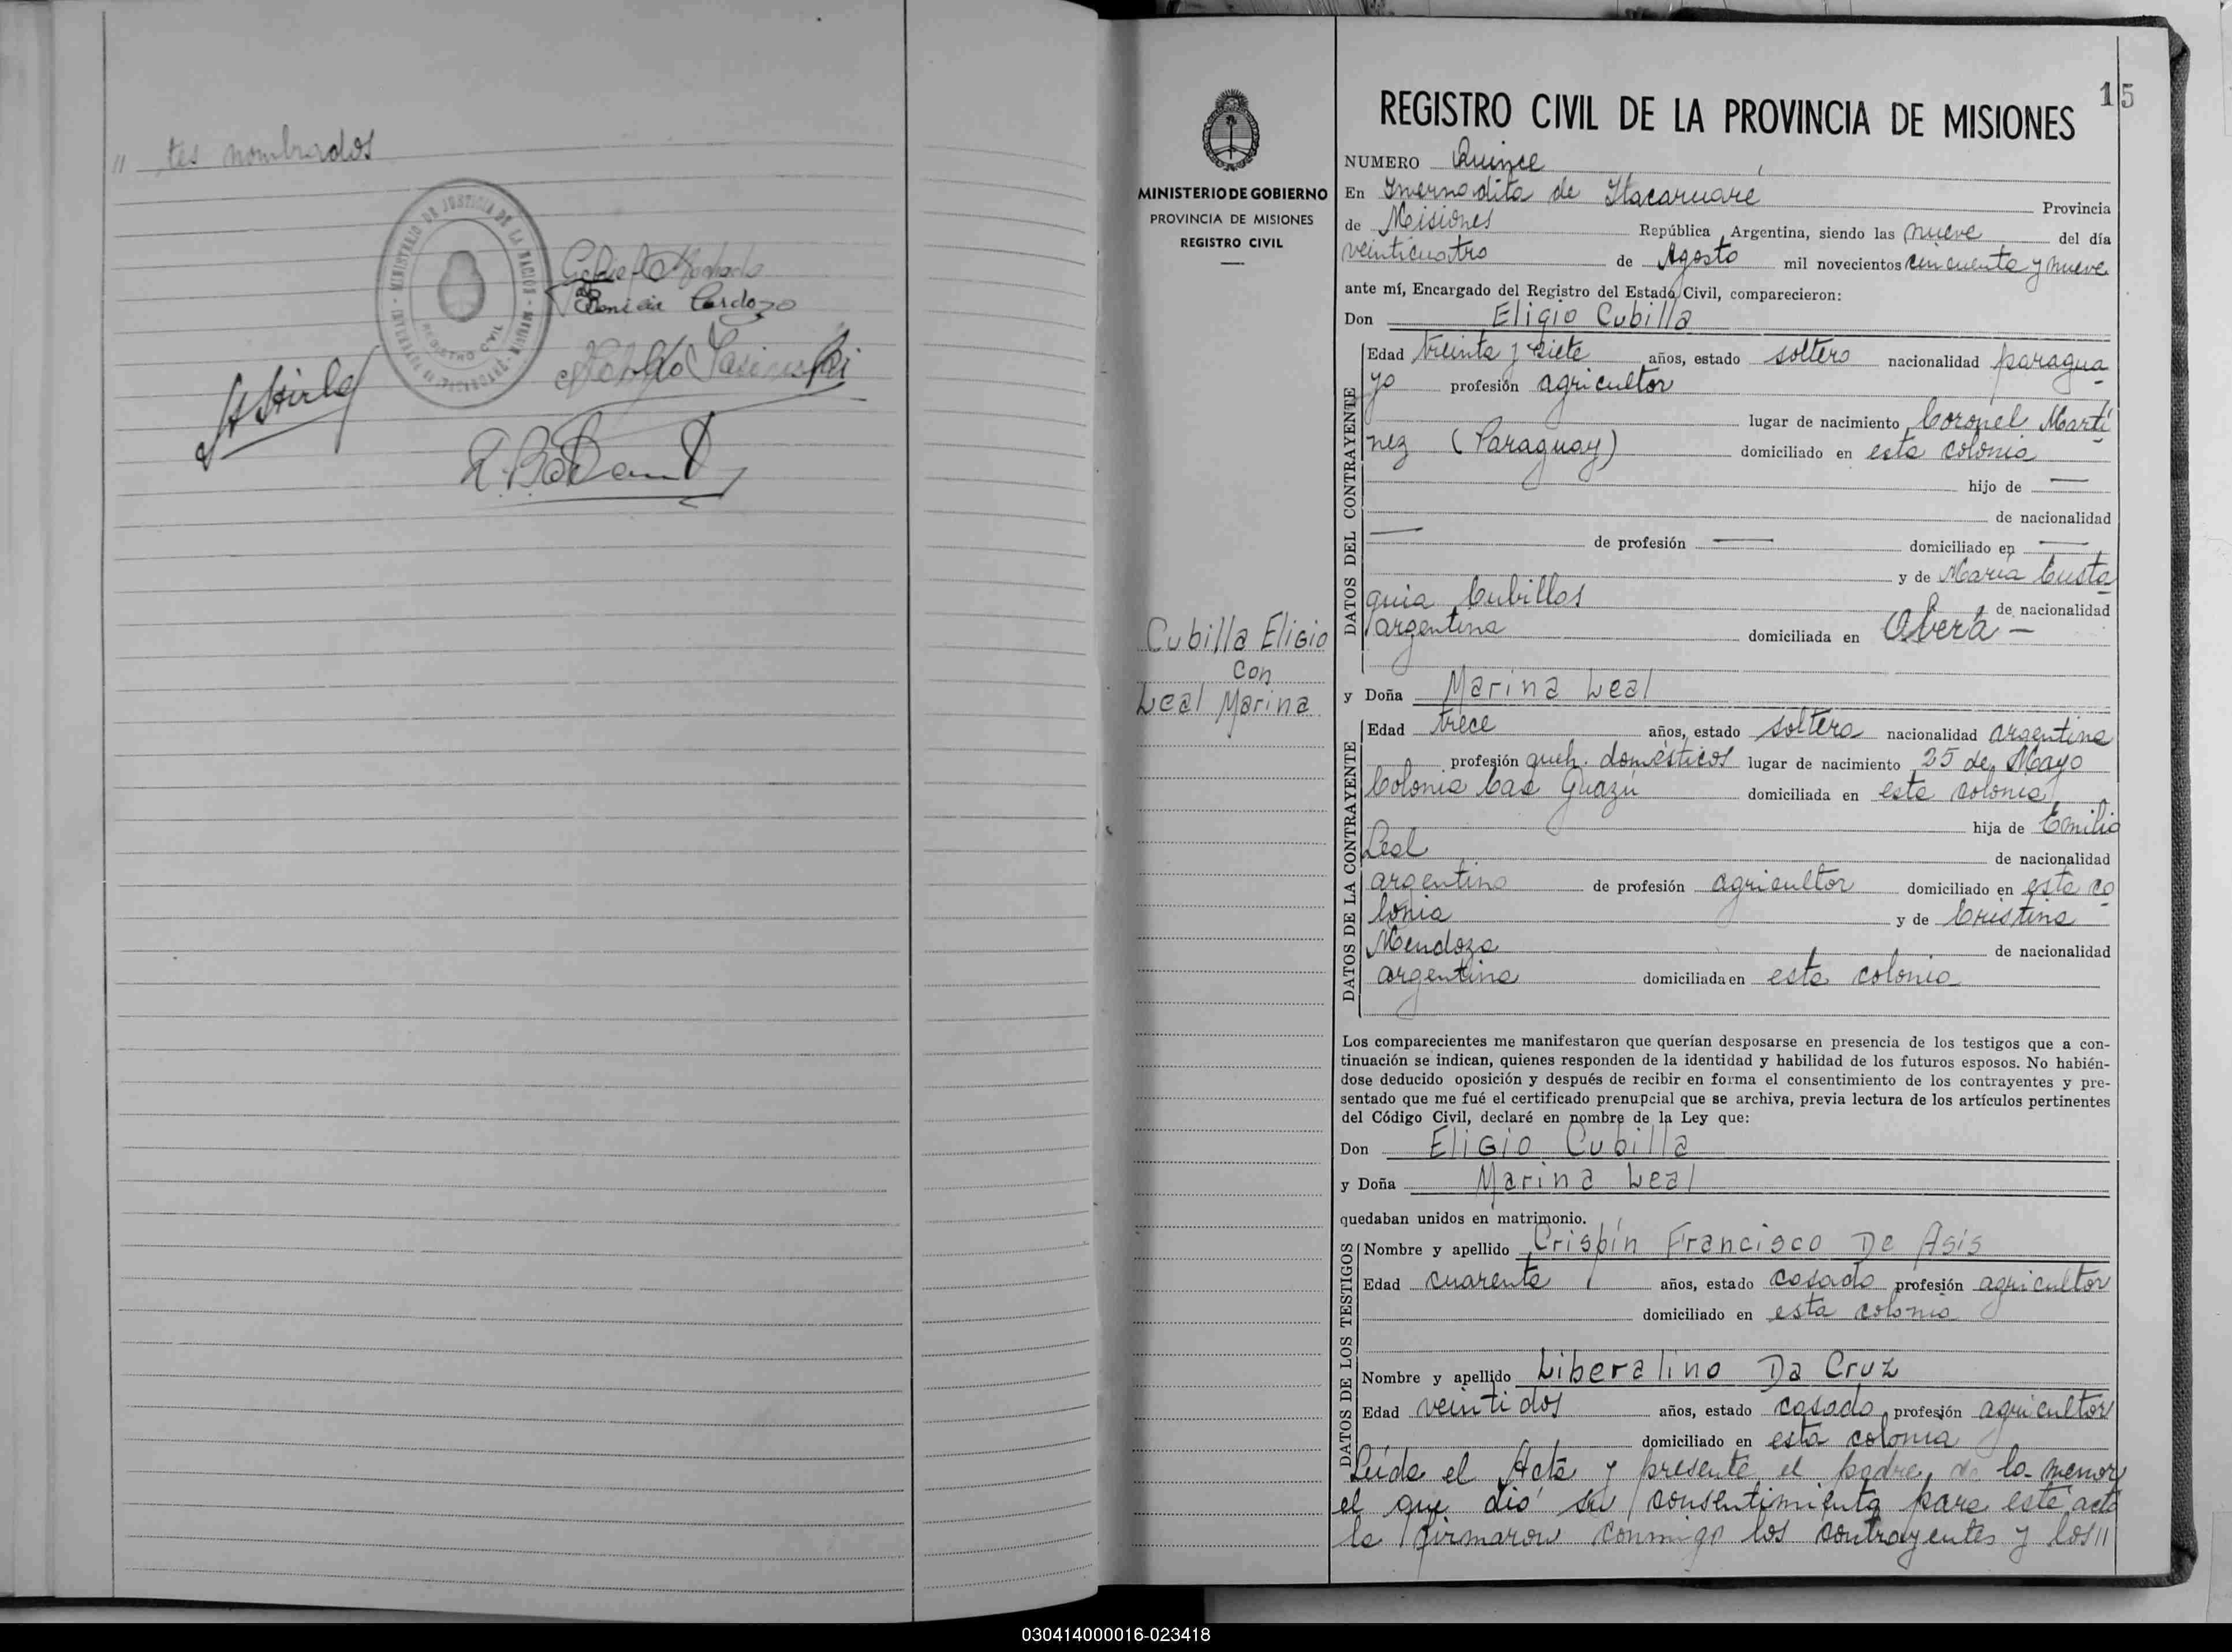 // tes nombrados
MINISTERIO DE JUSTICIA DE LA NACION
REGISTRO CIVIL
Cardozo
15
MINISTERIO DE GOBIERNO
PROVINCIA DE MISIONES
REGISTRO CIVIL
Cubilla Eligio
con
Leal Marina
REGISTRO CIVIL DE LA PROVINCIA DE MISIONES
NUMERO Quince
En Invernadita de Itacaruaré Provincia
de Misiones República Argentina, siendo las nueve del día
veinticuatro de Agosto mil novecientos cincuenta y nueve
ante mí, Encargado del Registro del Estado Civil, comparecieron:
Don Eligio Cubilla
DATOS DEL CONTRAYENTE
Edad treinta y siete años, estado soltero nacionalidad paragua
yo profesión agricultor
lugar de nacimiento Coronel Martí
nez (Paraguay) domiciliado en esta colonia
hijo de —
de nacionalidad
— de profesión — domiciliado en —
y de María Eusta
quia Cubillas de nacionalidad
argentina domiciliada en Oberá —
y Doña Marina Leal
DATOS DE LA CONTRAYENTE
Edad trece años, estado soltera nacionalidad argentina
profesión queh. domésticos lugar de nacimiento 25 de Mayo
Colonia Caá Guazú domiciliada en esta colonia
hija de Emilio
Leal de nacionalidad
argentino de profesión agricultor domiciliado en esta co
lonia y de Cristina
Mendoza de nacionalidad
argentina domiciliada en esta colonia
Los comparecientes me manifestaron que querían desposarse en presencia de los testigos que a con-
tinuación se indican, quienes responden de la identidad y habilidad de los futuros esposos. No habién-
dose deducido oposición y después de recibir en forma el consentimiento de los contrayentes y pre-
sentado que me fué el certificado prenupcial que se archiva, previa lectura de los artículos pertinentes
del Código Civil, declaré en nombre de la Ley que:
Don Eligio Cubilla
y Doña Marina Leal
quedaban unidos en matrimonio.
DATOS DE LOS TESTIGOS
Nombre y apellido Crispín Francisco De Asis
Edad cuarenta años, estado casado profesión agricultor
domiciliado en esta colonia
Nombre y apellido Liberalino Da Cruz
Edad veintidos años, estado casado profesión agricultor
domiciliado en esta colonia
Leída el Acta y presente el padre de la menor
el que dió su consentimiento para este acto
la firmaron conmigo los contrayentes y los //
030414000016-023418